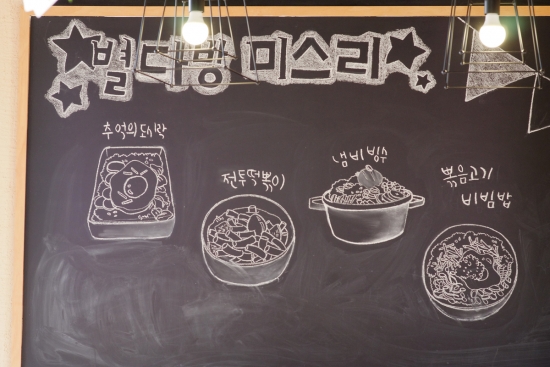 별다방 미스리
추억의 도시락
전투떡볶이
냄비빙수
볶음고기
비빔밥